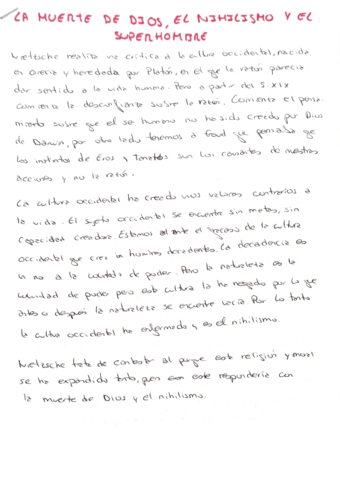 LA MUERTE DE DIOS, EL NIHILISMO Y EL
SUPERHOMBRE
Nietzsche realiza una crítica a la cultura occidental, nacida
en Grecia y heredada por Platón, en el que la razón parecia
dar sentido a la vida humana. Pero a partir del S.XIX
comienza la desconfianza sobre la razón. Comienza el pensa-
miento sobre que el ser humano no ha sido creado por Dios
de Darwin, por otro lado tenemos a Freud que pensaba que
los instintos de Eros y Tanatos son los causantes de nuestras
acciones y no la razón.
La cultura occidental ha creado unos valores contrarios a
la vida. El sujeto occidental se encuentra sin metas, sin
capacidad creadora. Estamos ante el fracaso de la cultura
occidental que crea un hombre decadente. La decadencia es
un no a la voluntad de poder. Pero la naturaleza es la
voluntad de poder pero esta cultura la ha negado por lo que
antes o después la naturaleza se encuentra vacía. Por lo tanto
la cultura occidental ha enfermado y es el nihilismo.
Nietzsche trata de contestar al porque esta religión y moral
se ha expandido tanto, pues este respondería con
la muerte de Dios y el nihilismo.